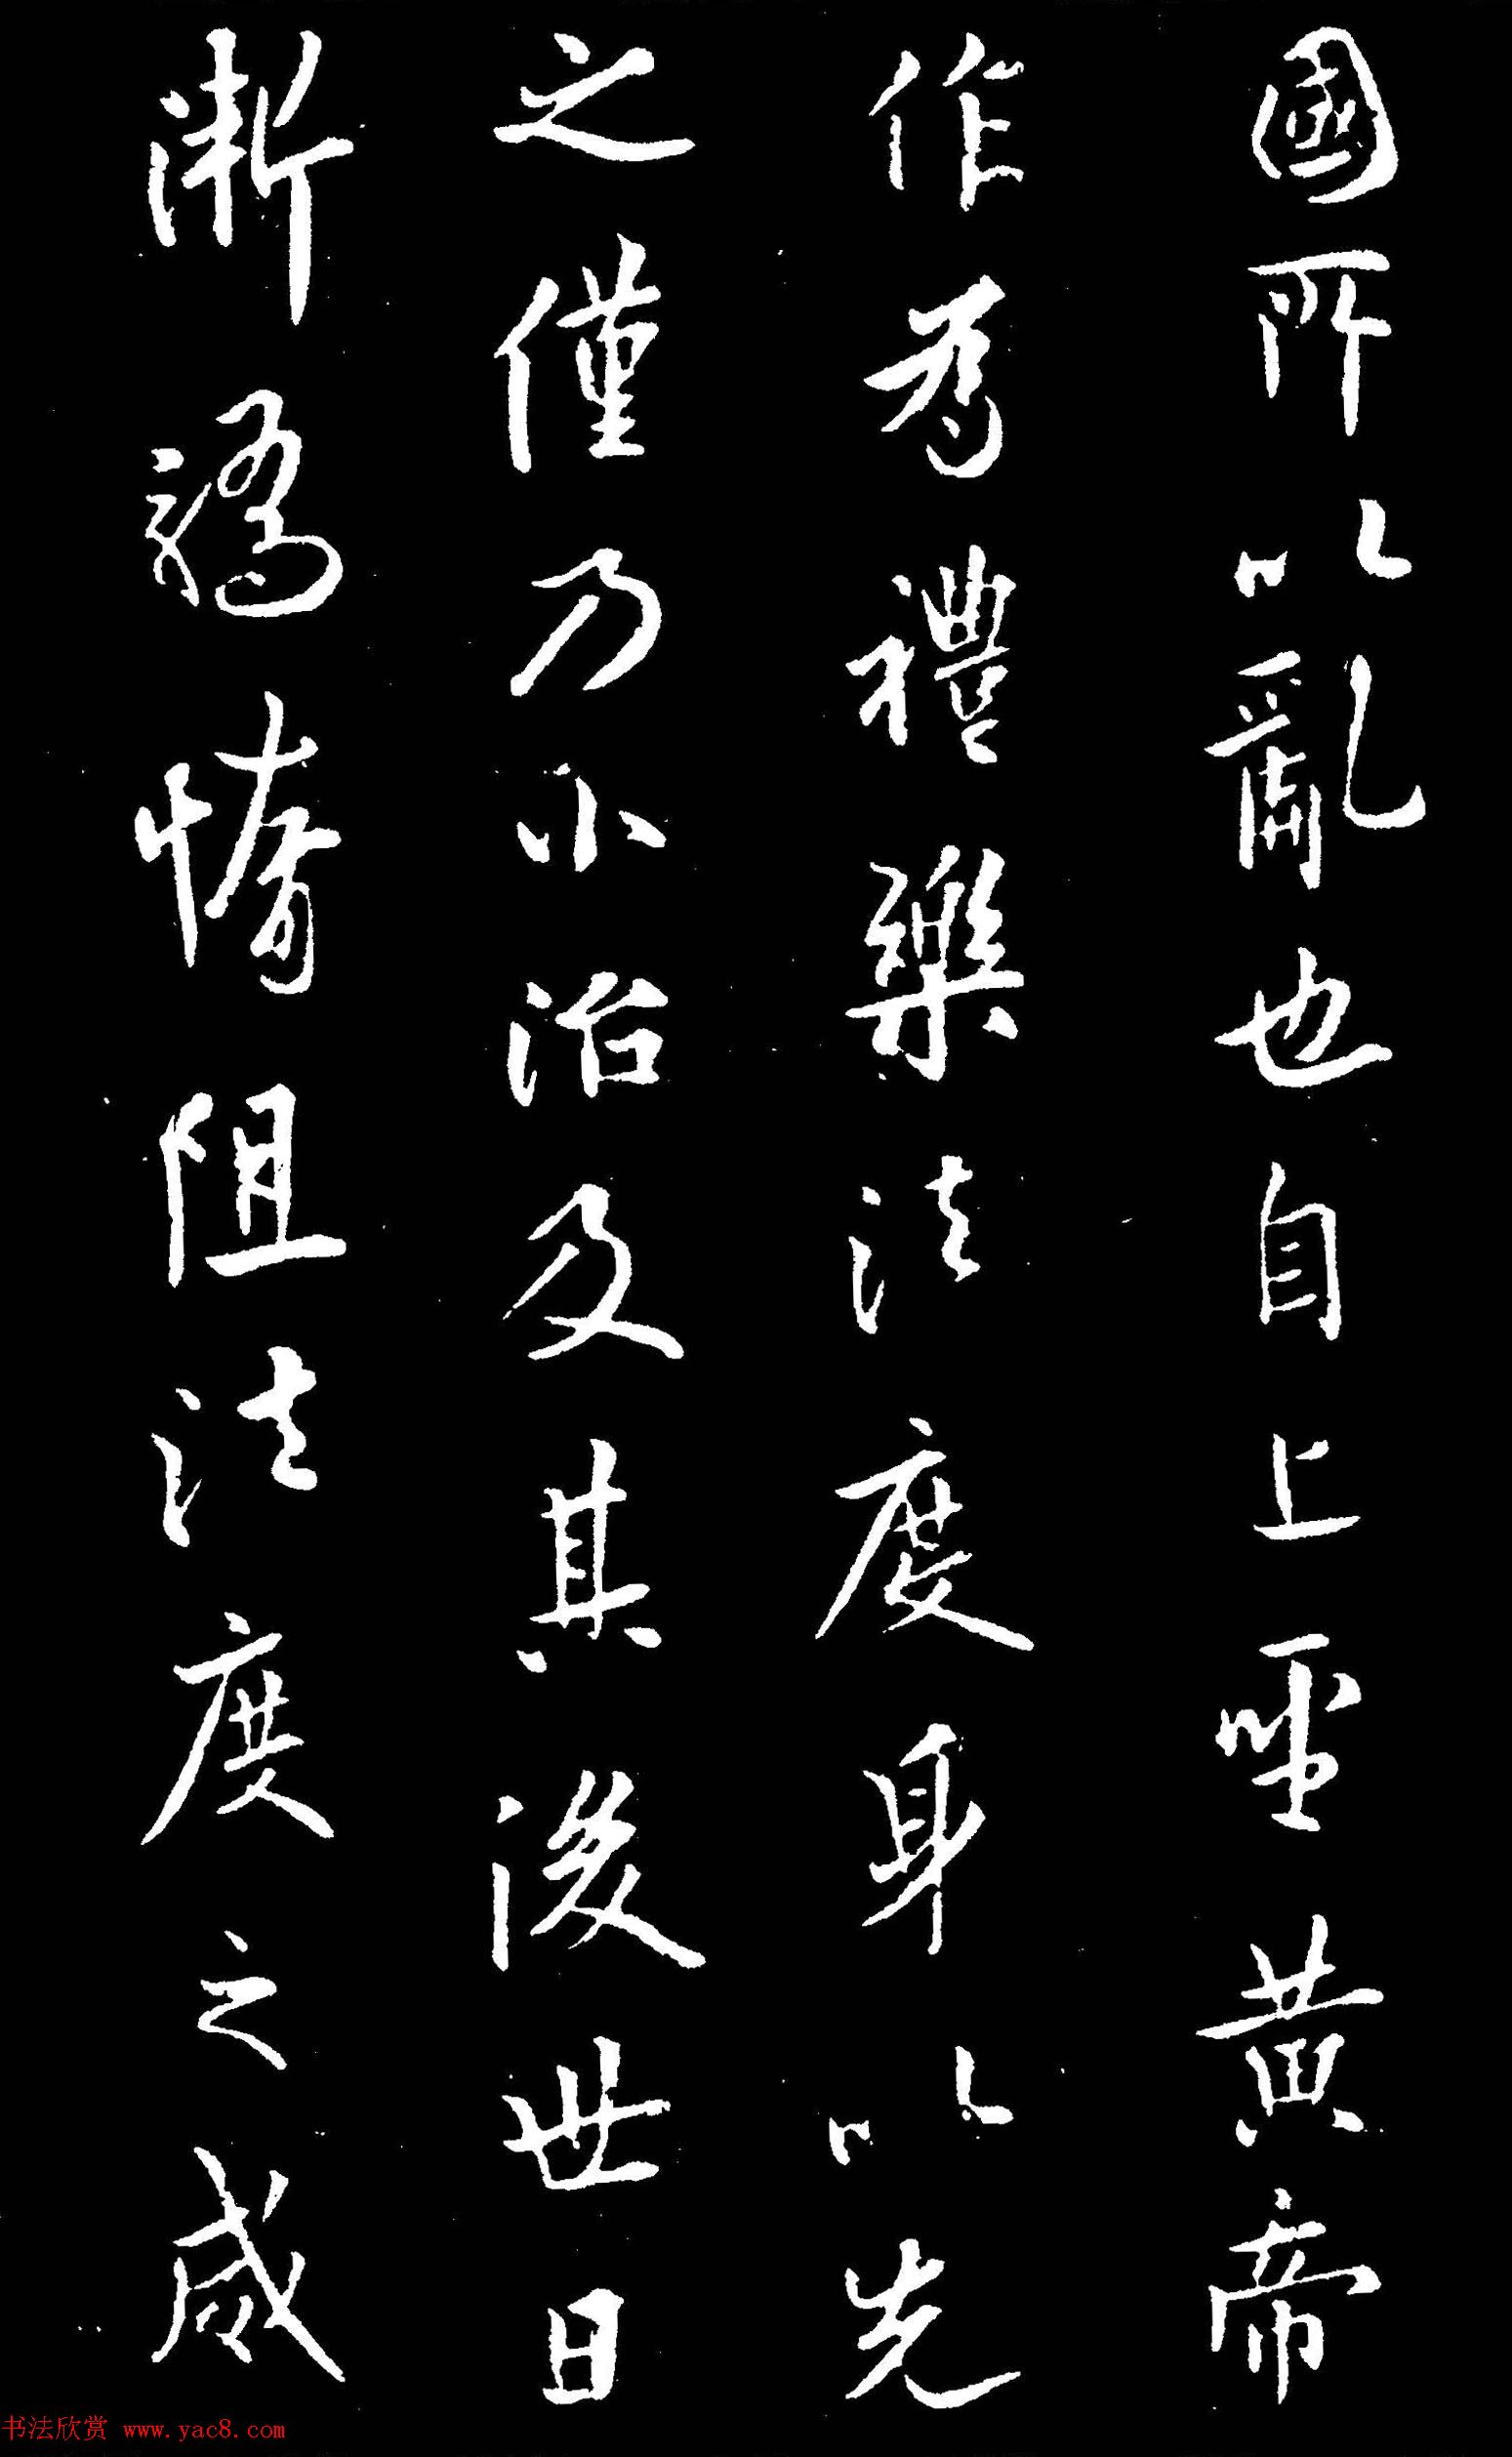 國所以亂也自上聖黃帝
作為禮樂法度身以先
之僅乃小治及其後世日
漸驕惰阻法度之威
书法欣赏 www.yac8.com